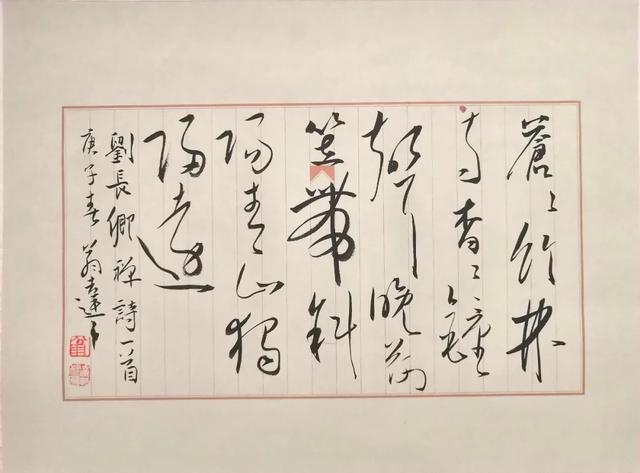 蒼〻竹林
寺杳〻鐘
聲晚荷
笠帶斜
陽青山獨
歸遠
劉長卿禪詩一首
庚子春 翁